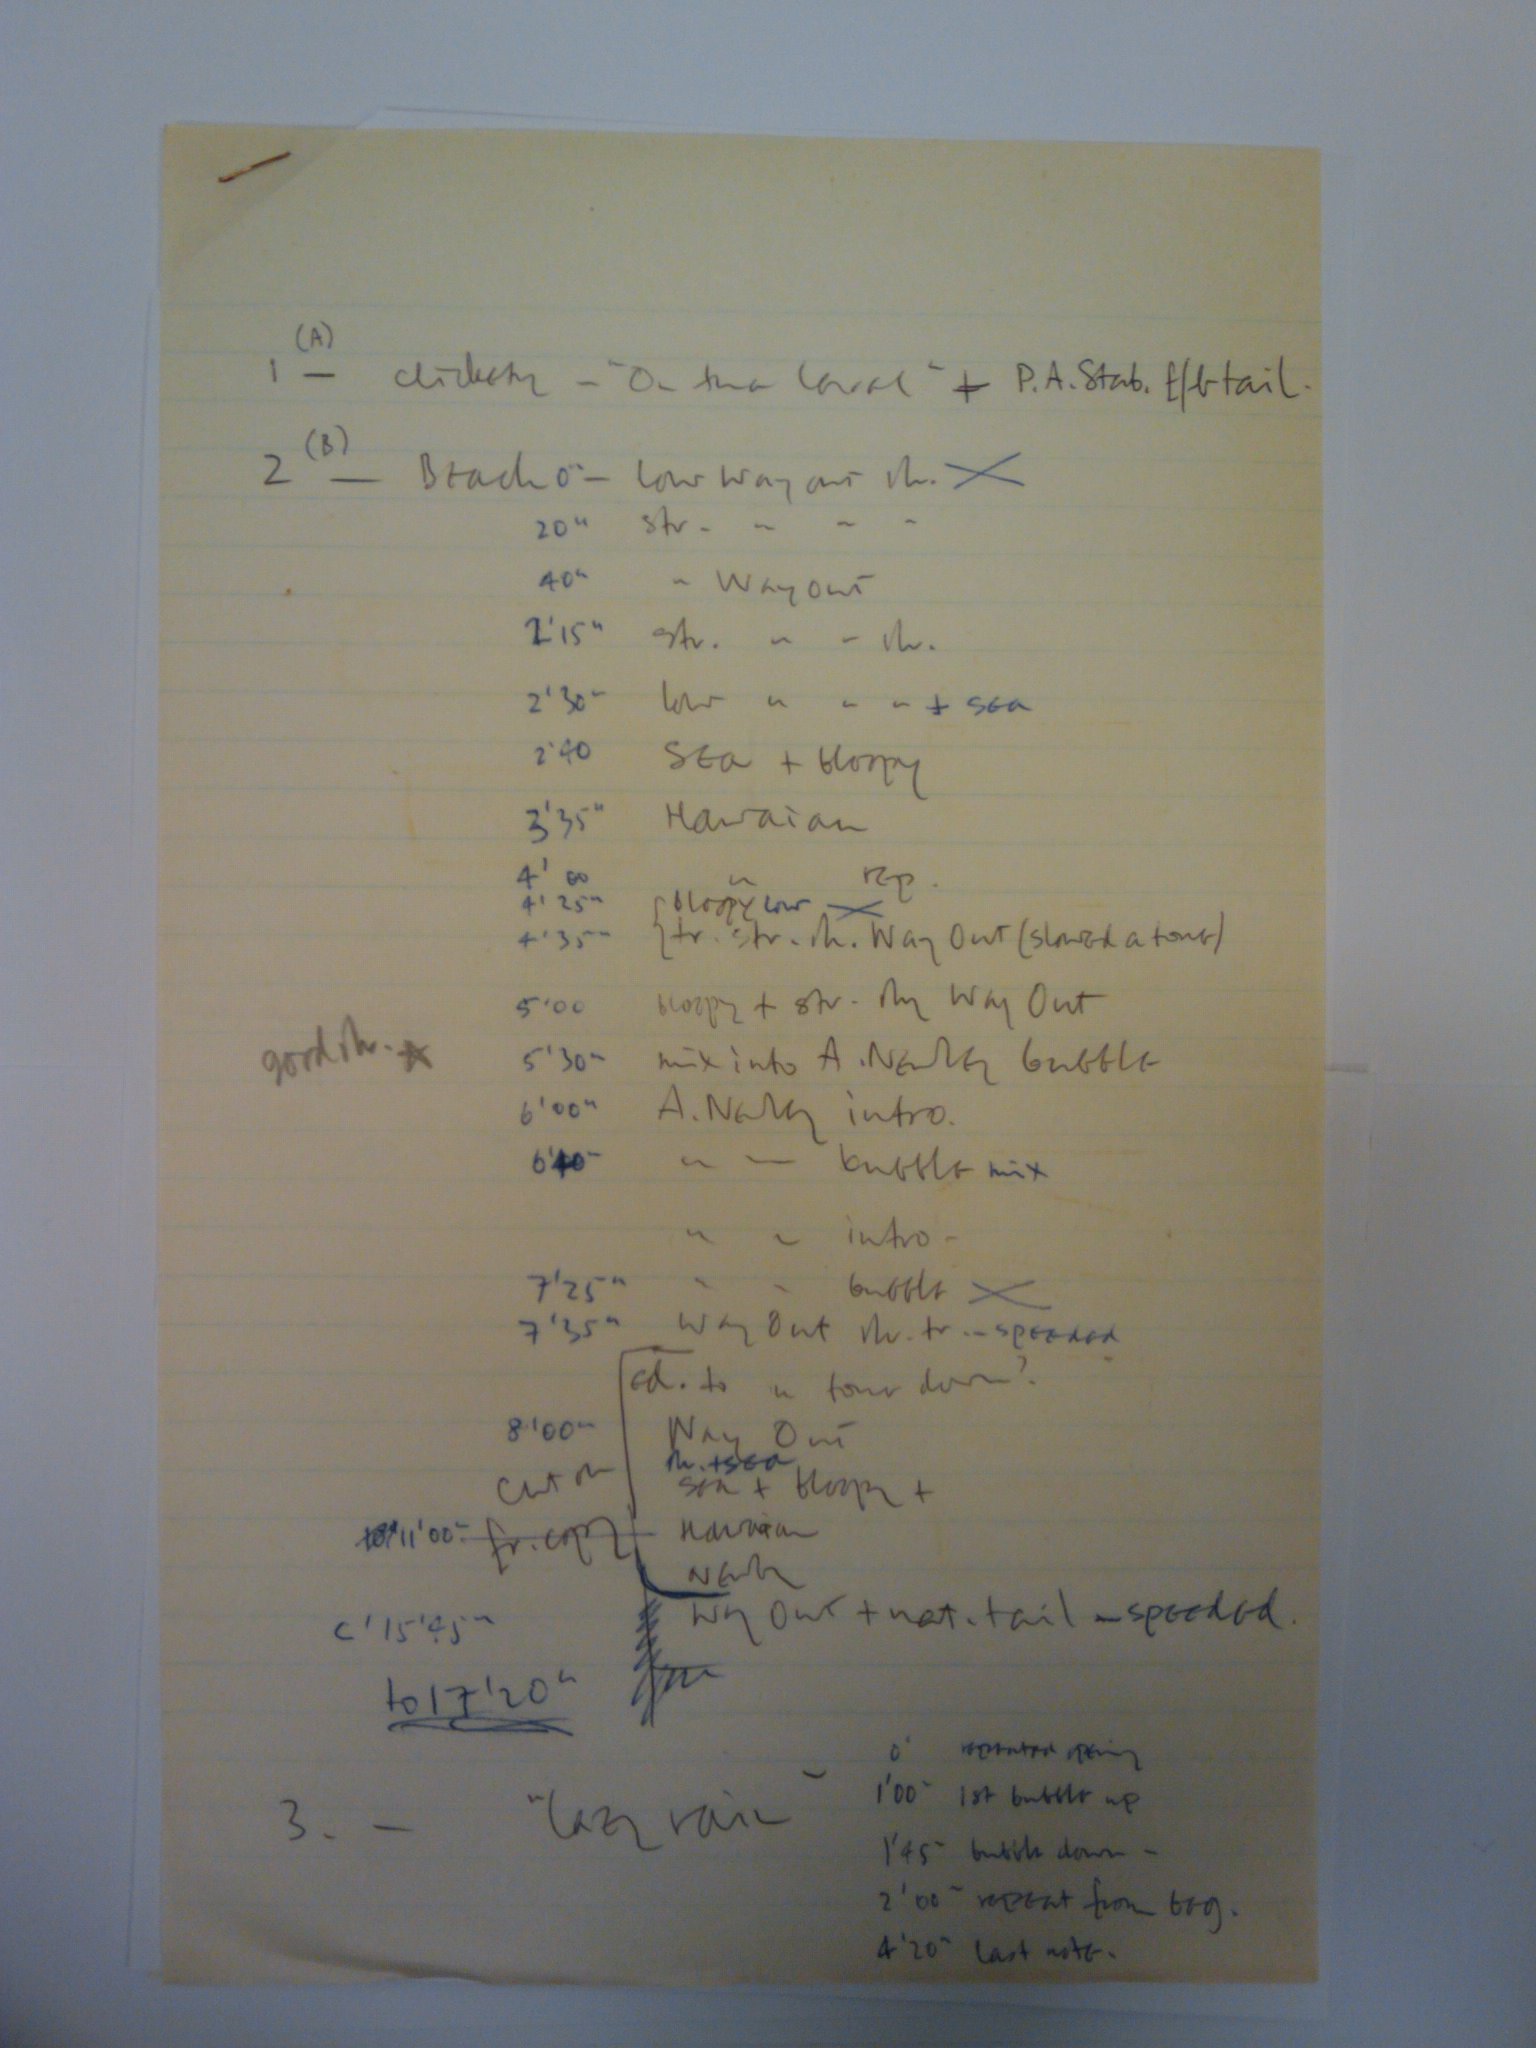 (A)
1 — clickety - "On the level" + P.A. Stab. f/b tail.
(B)
2 — Beach 0" - low Way out rh. X
20" str. " " "
40" " Way Out
2'15" str. " " rh.
2'30" low " " " + sea
2'40 Sea + bloopy
3'35" Hawaian
4'00 " rep.
4'25" bloopy low X
4'35" tr. str. rh. Way Out (slowed a tone)
5'00 bloopy + str. rhy Way Out
good rh. ☆ 5'30" mix into A. Newley bubble
6'00" A. Newley intro.
6'40" " — bubble mix
" " intro -
7'25" " " bubble X
7'35" Way Out rh. tr. - speeded
ed. to " tone down?
8'00" Way Out
rh. + sea
Cut sea + bloopy +
11'00" fr. copy Hawaian
Newley
c' 15'45" Way Out + nat. tail - speeded.
to 17'20"
0' repeated opening
1'00" 1st bubble up
3. — "Lazy rain"
1'45" bubble down -
2'00" repeat from beg.
4'20" last note.